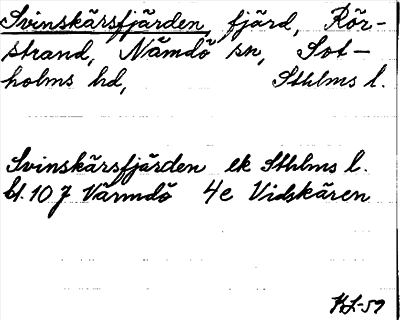 Svinskärsfjärden, fjärd, Rör-
strand, Nämdö sn, Sot-
holms hd, Sthlms l.
Svinskärsfjärden ek Sthlms l.
bl. 10 J Värmdö 4e Vidskären
KL-59